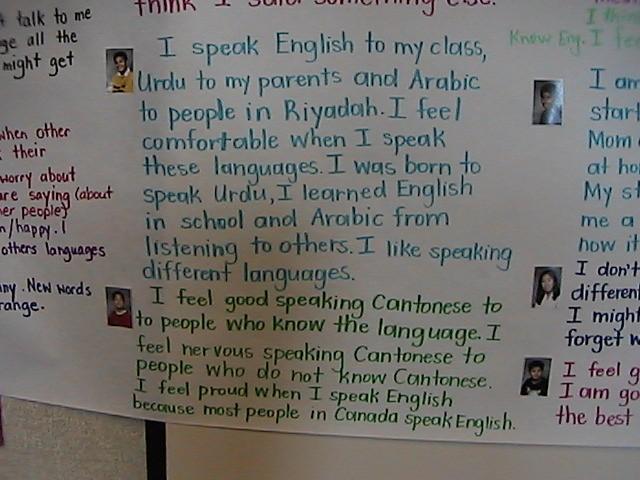 think I said something else.
talk to me
ge all the
might get
when other
their
worry about
are saying (about
er people)
n/happy. I
others languages
ny. New words
range.
I speak English to my class,
Urdu to my parents and Arabic
to people in Riyadah. I feel
comfortable when I speak
these languages. I was born to
speak Urdu, I learned English
in school and Arabic from
listening to others. I like speaking
different languages.
I feel good speaking Cantonese to
to people who know the language. I
feel nervous speaking Cantonese to
people who do not know Cantonese.
I feel proud when I speak English
because most people in Canada speak English.
I thin
Know Eng. I fee
I am
start
Mom
at ho
My st
me a
how it
I don't
different
I might
forget w
I feel g
I am go
the best